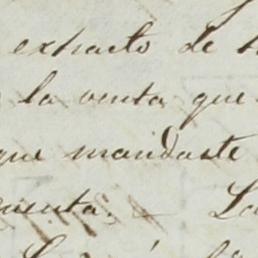 extracto de
la venta que
que mandaste
cuenta. — La